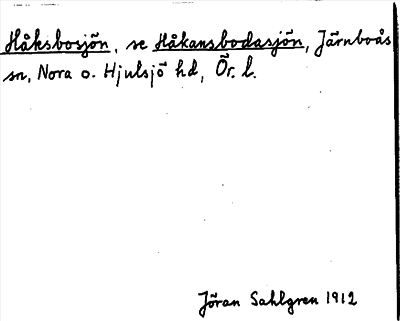 Håksbosjön, se Håkansbodasjön, Järnboås
sn, Nora o. Hjulsjö hd, Ör. l.
Jöran Sahlgren 1912